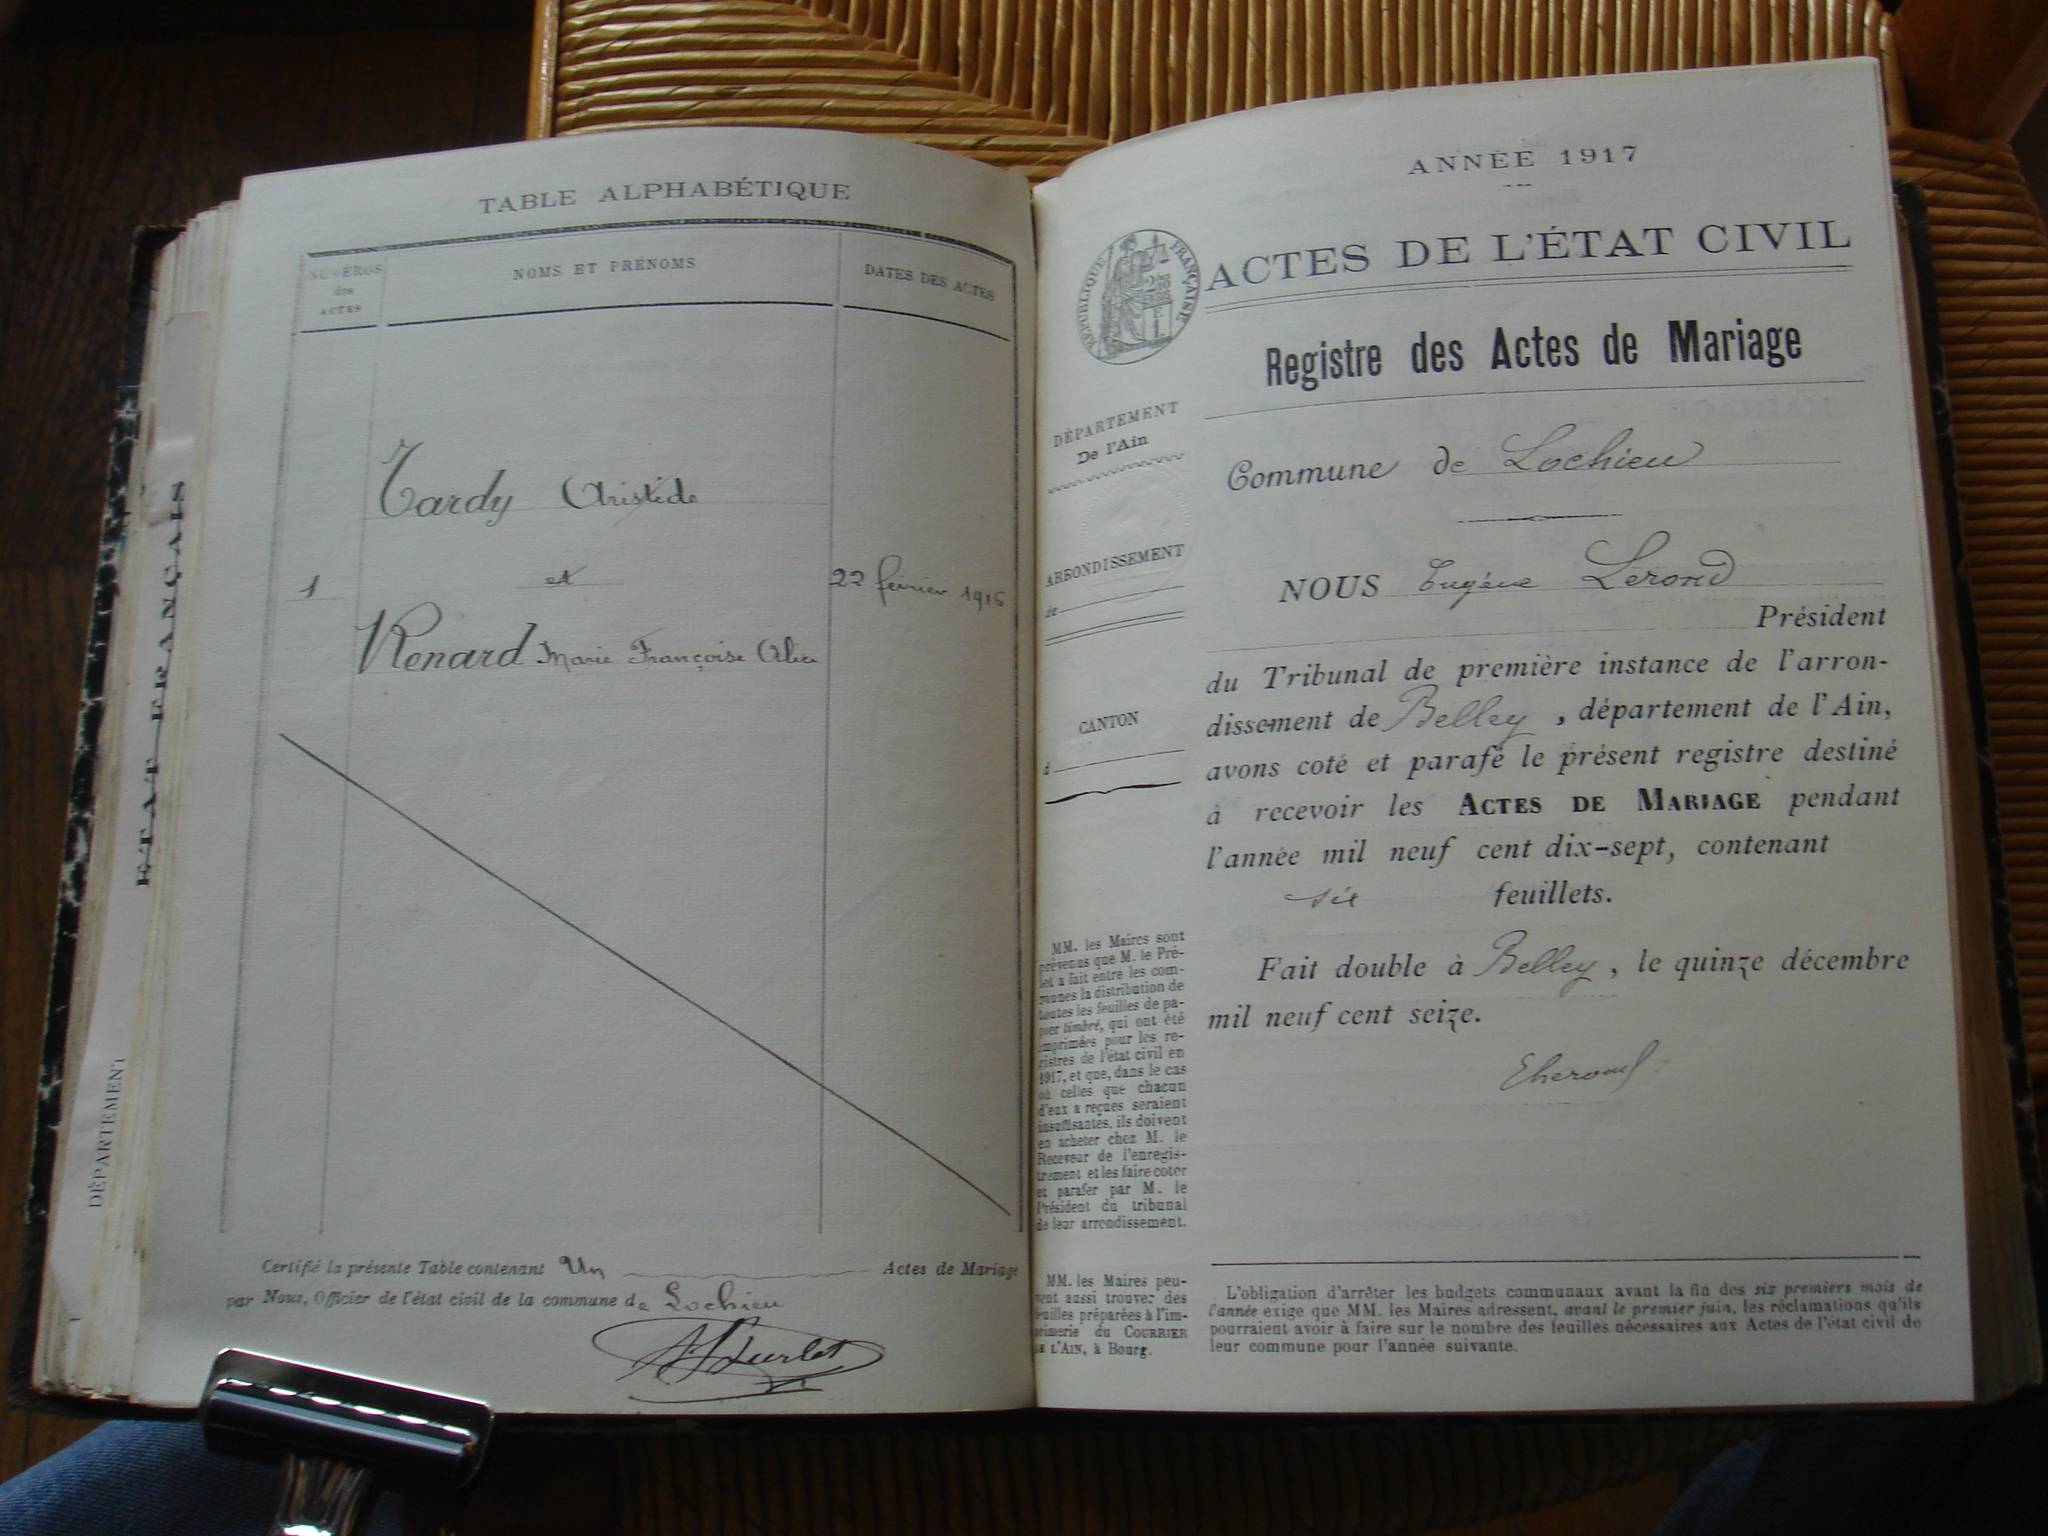 TABLE ALPHABÉTIQUE
NUMÉROS
des
ACTES
NOMS ET PRÉNOMS
DATES DES ACTES
Tardy Aristide
1
et
22 février 1916
Renard Marie Françoise Alice
Certifié la présente Table contenant Un Actes de Mariage
par Nous, Officier de l'état civil de la commune de Lochieu
ÉTAT FRANÇAIS
DÉPARTEMENT
ANNÉE 1917
RÉPUBLIQUE FRANÇAISE
ACTES DE L'ÉTAT CIVIL
Registre des Actes de Mariage
DÉPARTEMENT
De l'Ain
ARRONDISSEMENT
de
CANTON
d
Commune de Lochieu
NOUS Eugène Lerond
Président
du Tribunal de première instance de l'arron-
dissement de Belley, département de l'Ain,
avons coté et parafé le présent registre destiné
à recevoir les ACTES DE MARIAGE pendant
l'année mil neuf cent dix-sept, contenant
six feuillets.
Fait double à Belley, le quinze décembre
mil neuf cent seize.
MM. les Maires sont
prévenus que M. le Pré-
fet a fait entre les com-
munes la distribution de
toutes les feuilles de pa-
pier timbré, qui ont été
imprimées pour les re-
gistres de l'état civil en
1917, et que, dans le cas
où celles que chacun
d'eux a reçues seraient
insuffisantes, ils doivent
en acheter chez M. le
Receveur de l'enregis-
trement et les faire coter
et parafer par M. le
Président du tribunal
de leur arrondissement.
MM. les Maires peu-
vent aussi trouver des
feuilles préparées à l'im-
primerie du COURRIER
DE L'AIN, à Bourg.
L'obligation d'arrêter les budgets communaux avant la fin des six premiers mois de
l'année exige que MM. les Maires adressent, avant le premier juin, les réclamations qu'ils
pourraient avoir à faire sur le nombre des feuilles nécessaires aux Actes de l'état civil de
leur commune pour l'année suivante.